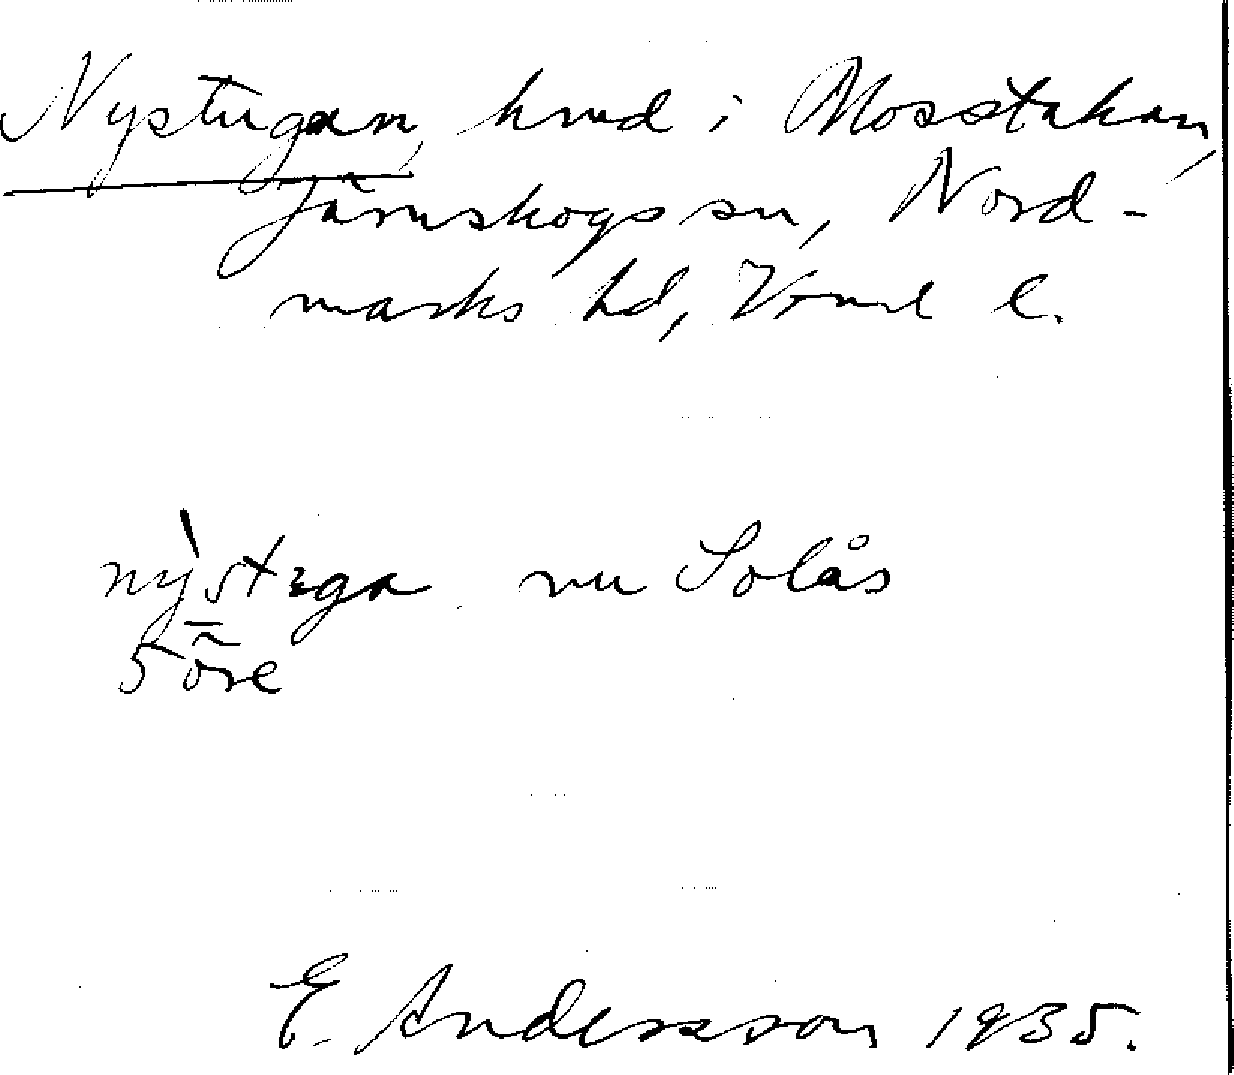 Nystugan, hmd i Mosstakan,
Järnskogs sn, Nord-
marks hd, Vrml l.
nỳstɜga nu Solås
5 öre
E. Andersson 1935.